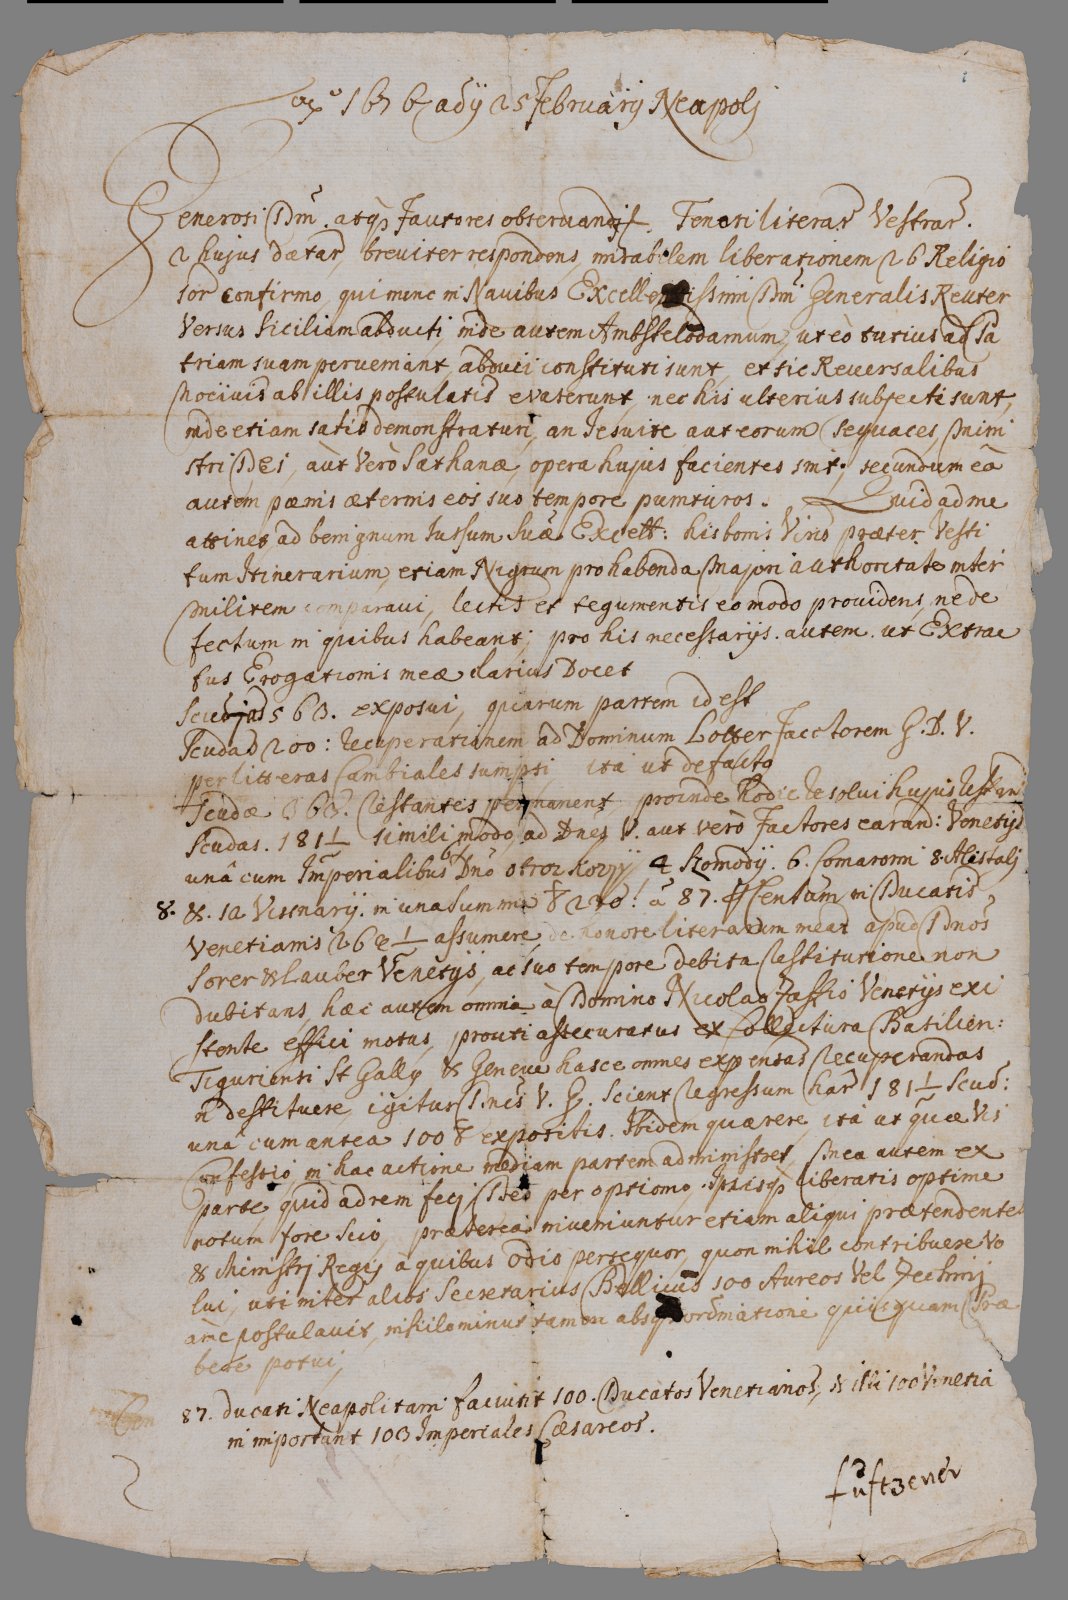 1676 adij 25 Februarij Neapolj
Generosi Dni. atq3 Fautores observandiss. Tenori literar Vestrar.
2 hujus datar, breviter respondens, mirabilem liberationem 26 Religio
sor confirmo, qui nunc in Navibus Excellentissimi Dni Generalis Reuter
Versus Siciliam abducti, inde autem Ambstelodamum, ut eò tutius ad Pa
triam suam perveniant, abduci constituti sunt, et sic Reversalibus
Nocivis ab illis postulatis evaserunt, nec his ulterius subjecti sunt,
inde etiam satis demonstraturi, an Jesuite aut eorum Sequaces, Mini
stri DEi, aut Verò Sathanæ, opera hujus facientes sint; secundum ea
autem pænis æternis eos suo tempore punituros. Quid ad me
attinet, ad benignum Jussum Suæ Excell: his bonis Viris præter Vesti
tum Itinerarium, etiam Nigrum pro habenda Majori authoritate inter
Militem comparavi, lectis et tegumentis eo modo providens, ne de
fectum in quibus habeant; pro his necessarijs autem ut Extrac
tus Erogationis meæ clarius Docet
Scudad 563. exposui, quarum partem id est
Scudad 200: recuperationem ad Dominum Lotter Factorem G. D. V.
per litteras Cambiales sumpsi ita ut de facto
Scudæ 363. restantes permanent, proinde hodie resolvi hujus
Scudas. 181½ simili modo, ad Dnes V. aut verò Factores earand: Venetijs
unâ cum Imperialibus Dno otroz Kozyÿ 4 Komodij. 6. Comaromi 8 Alistalj
8. &. 12 Vesznarij. in una Summa à 87. Centum in Ducatis
Venetianis 262½ assumere, de honore literarum mear apud Dnos
Sorer & Lauber Venetijs, ac suo tempore debita restitutione non
dubitans, hæc autem omnia à Domino Nicolao Zaffio Venetijs exi
stente effici motus, prouti assecuratus ex Collectura Basilien:
Tiguriensi St Gally & Geneve hasce omnes expensas recuperandas
n destituere, igitur Dnes V. G. scient regressum har 181½ Scud:
unâ cum antea 100 expositis. Ibidem quærere, ita ut quæ Vis
Confessio in hac actione mediam partem administret, Mea autem ex
parte quid ad rem feci Deo per optimo. Ipsisq3 liberatis optime
notum fore Scio, præterea inveniuntur etiam aliqui prætendentes
& Ministrj Regis à quibus odio persequor, quon nihil contribuere vo
lui, uti inter alios Secretarius Bellicus 100 Aureos Vel Zechinj
à me postulavit, nihilominus tamen absq3 ordinatione quicquam Præ
bere potui,
87. ducati Neapolitani faciunt 100. Ducatos Venetianos, & illi 100 Venetia
ni important 103 Imperiales Cæsareos.